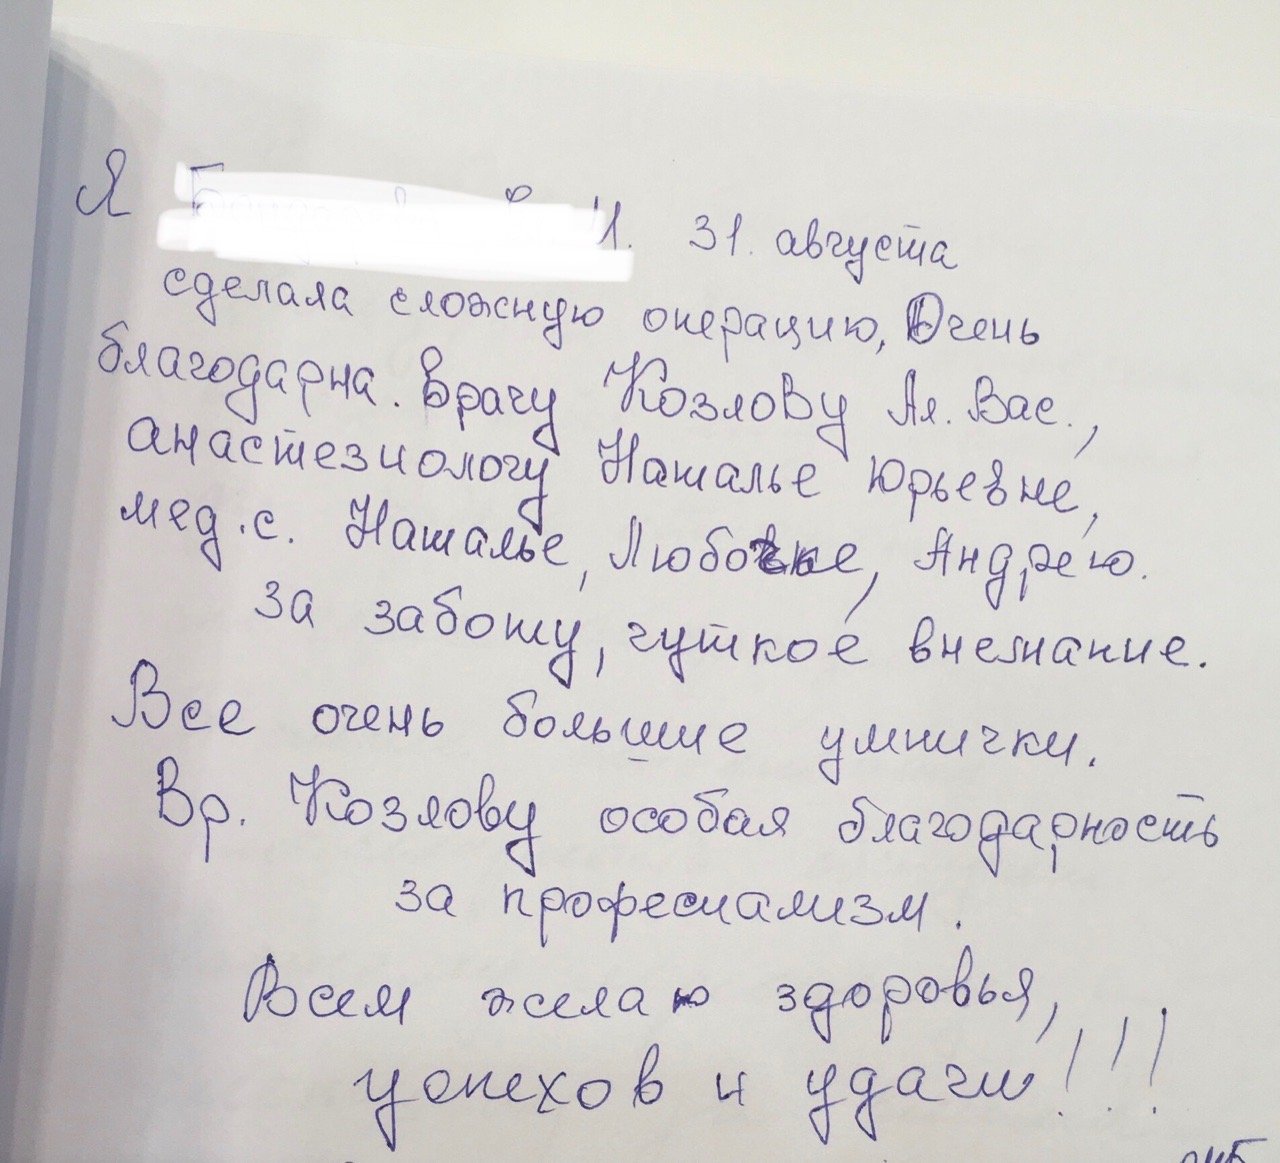 Я И. 31. августа
сделала сложную операцию, Очень
благодарна. Врачу Козлову Ал. Вас.,
анастезиологу Наталье Юрьевне,
мед.с. Наталье, Любочке, Андрею.
за заботу, чуткое внемание.
Все очень большие умнички.
Вр. Козлову особая благодарность
за професиализм.
Всем желаю здоровья,
успехов и удачи!!!